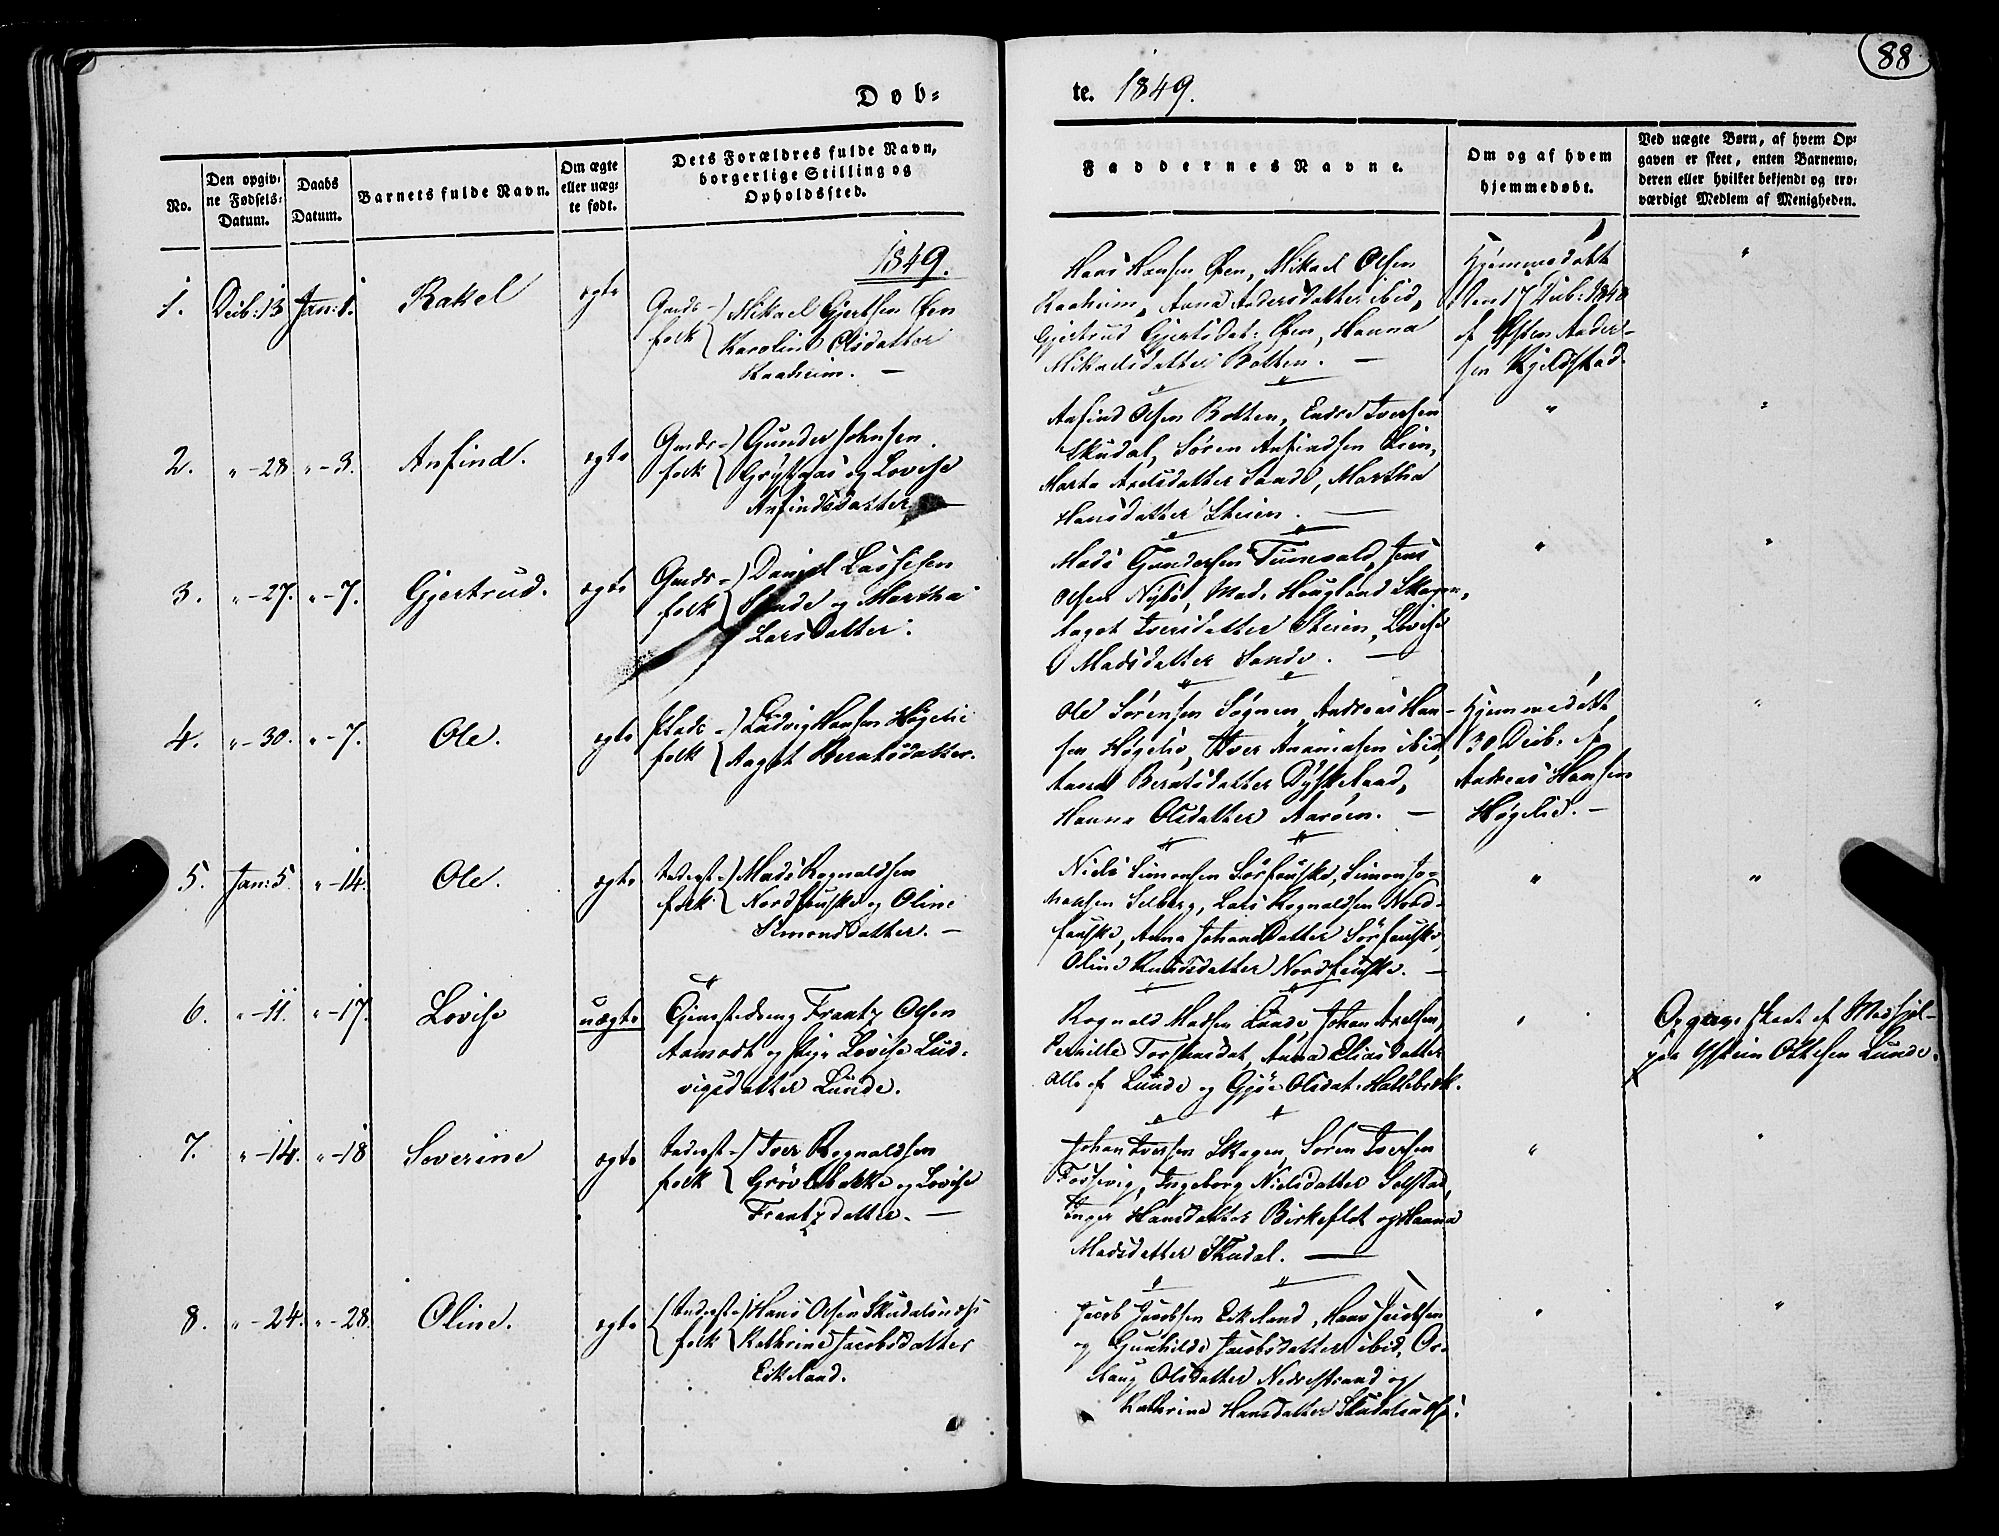 88
Døb=
te. 1849.
No.
Den opgiv=
ne Fødsels=
Datum.
Daabs
Datum.
Barnets fulde Navn.
Om ægte
eller uæg=
te født.
Dets Forældres fulde Navn,
borgerlige Stilling og
Opholdssted.
Faddernes Navne.
Om og af hvem
hjemmedøbt.
Ved uægte Børn, af hvem Op=
gaven er skeet, enten Barnemo=
deren eller hvilket bekjendt og tro=
værdigt Medlem af Menigheden.
1849.
1. Decb: 13 Jan: 1. Rakel ægte
Gmds-
folk
Mikael Gjertsen Øen
Karoline Olsdatter
Raaheim. —
Hans Hansen Øen, Mikael Olsen
Raaheim, Anna Andersdatter ibid,
Gjertrud Gjertsdat: Øen, Hanna
Mikaelsdatter Botten. —
Hjemmedøbt
den 17 Decb: 1848
af Østen Ander-
sen Kjeldstad.
"
2. "-28 "-3. Anfind. ægte
Gmds-
folk
Gunder Johnsen
og Lovise
Anfindsdatter —
Anfind Olsen Botten, Endre Iversen
Skudal, Søren Anfindsen Lien,
Marte Axelsdatter Sande, Martha
Hansdatter Steien. —
"
"
3. "-27. "-7. Gjertrud. ægte
Gmds-
folk
Daniel Lassesen
Sande og Martha
Larsdatter.
Mads Gundersen Tunvald, Jens
Olsen Nybø, Mads Hougland Skogen,
Aagot Iversdatter Steien, Lovise
Madsdatter Sande. —
"
"
4. "-30. "-7. Ole. ægte
folk
Ludvig Hansen Høgelie
Aagot Berntsdatter.
Ole Sørensen Søgnen, Andreas Han-
sen Høgelie, Iver Ananiasen ibid,
Anne Berntsdatter Dyskeland,
Hanna Olsdatter Aarøen. —
Hjemmedøbt
30 Decb: af
Andreas Hansen
Høgelie. —
"
5. Jan: 5. "-14. Ole. ægte
Inderst-
folk
Mads Rognaldsen
Nordfouske og Oline
Simonsdatter. —
Niels Simonsen Sørfouske, Simon Jo-
hansen Selberg, Lars Rognaldsen Nord-
fouske, Anna Johansdatter Sørfouske,
Oline Knudsdatter Nordfouske. —
"
"
6. "-11. "-17. Lovise uægte
Tjenestedreng Frantz Olsen
Aamodt og Pige Lovise Lud-
vigsdatter Lunde.
Rognald Madsen Lunde, Johan Axelsen,
Pernille Torstensdat, Anna Eliasdatter
alle af Lunde og Gjøa Olsdat: Hattebæk.
"
Opgave skeet af Medhjel-
per Østein Ottesen Lunde.
7. "-14. "-18 Severine ægte
Inderst-
folk
Iver Rognaldsen
Grøvlebakke og Lovise
Frantzdatter. —
Johan Iversen Skogen, Søren Iversen
Fossevig, Ingeborg Nielsdatter Solstad,
Inger Hansdatter Birkeflot og Hanna
Madsdatter Skudal. —
"
"
8. "-24. "-28. Oline. ægte
Inderst-
folk
Hans Olsen Skudalsnæs
Kathrine Jacobsdatter
Eikeland.
Jacob Jacobsen Eikeland, Hans Knudsen
og Gunhilde Jacobsdatter ibid, Os-
laug Olsdatter Nedrestrand og
Kathrine Hansdatter Skudalsnæs.
"
"